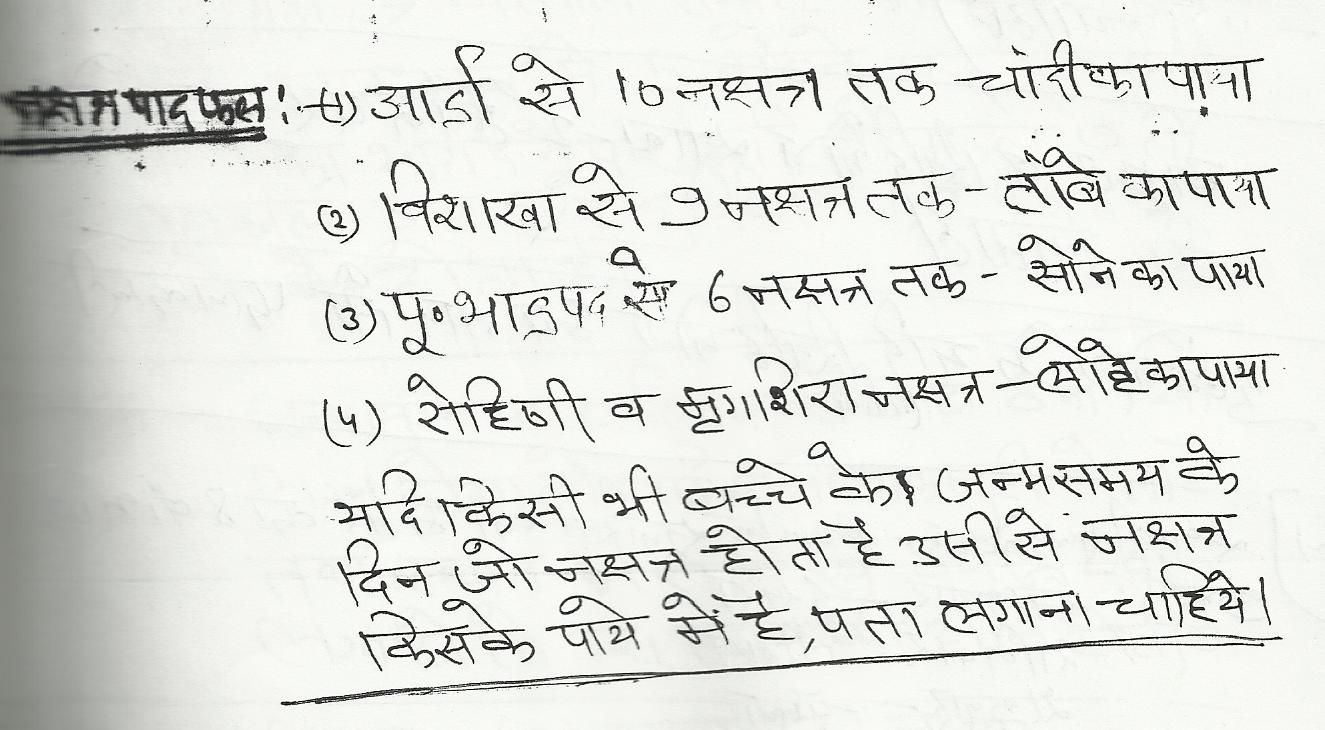 नक्षत्र पाद फल:- (1) आर्द्रा से 10 नक्षत्र तक - चांदी का पाया
(2) विशाखा से 9 नक्षत्र तक - ताँबे का पाया
(3) पू० भाद्रपद से 6 नक्षत्र तक - सोने का पाया
(4) रोहिणी व मृगशिरा नक्षत्र - लोहे का पाया
यदि किसी भी बच्चे के जन्म समय के
दिन जो नक्षत्र होता है उसी से नक्षत्र
किसके पाये में है, पता लगाना चाहिये।